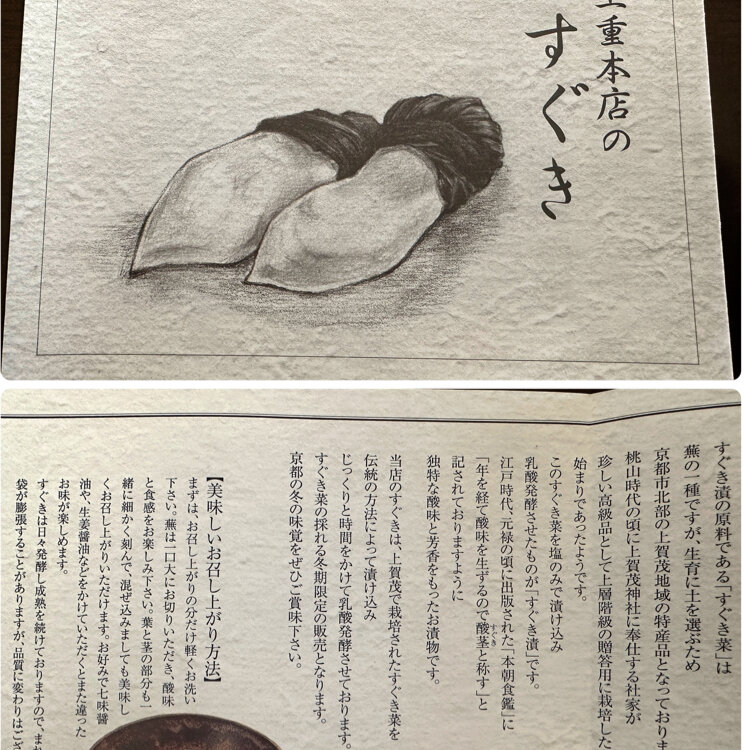 重本店の
すぐき
すぐき漬の原料である「すぐき菜」は
蕪の一種ですが、生育に土を選ぶため
京都市北部の上賀茂地域の特産品となっており
桃山時代の頃に上賀茂神社に奉仕する社家が
珍しい高級品として上層階級の贈答用に栽培した
始まりであったようです。
このすぐき菜を塩のみで漬け込み
乳酸発酵させたものが「すぐき漬」です。
江戸時代、元禄の頃に出版された「本朝食鑑」に
「年を経て酸味を生ずるので酸茎と称す」と
すぐき
記されておりますように
独特な酸味と芳香をもったお漬物です。
当店のすぐきは、上賀茂で栽培されたすぐき菜を
伝統の方法によって漬け込み
じっくりと時間をかけて乳酸発酵させております。
すぐき菜の採れる冬期限定の販売となります。
京都の冬の味覚をぜひご賞味下さい。
【美味しいお召し上がり方法】
まずは、お召し上がりの分だけ軽くお洗い
下さい。蕪は一口大にお切りいただき、酸味
と食感をお楽しみ下さい。葉と茎の部分も一
緒に細かく刻んで、混ぜ込みましても美味し
くお召し上がりいただけます。お好みで七味醤
油や、生姜醤油などをかけていただくとまた違った
お味が楽しめます。
すぐきは日々発酵し成熟を続けておりますので、まれ
袋が膨張することがありますが、品質に変わりはござ